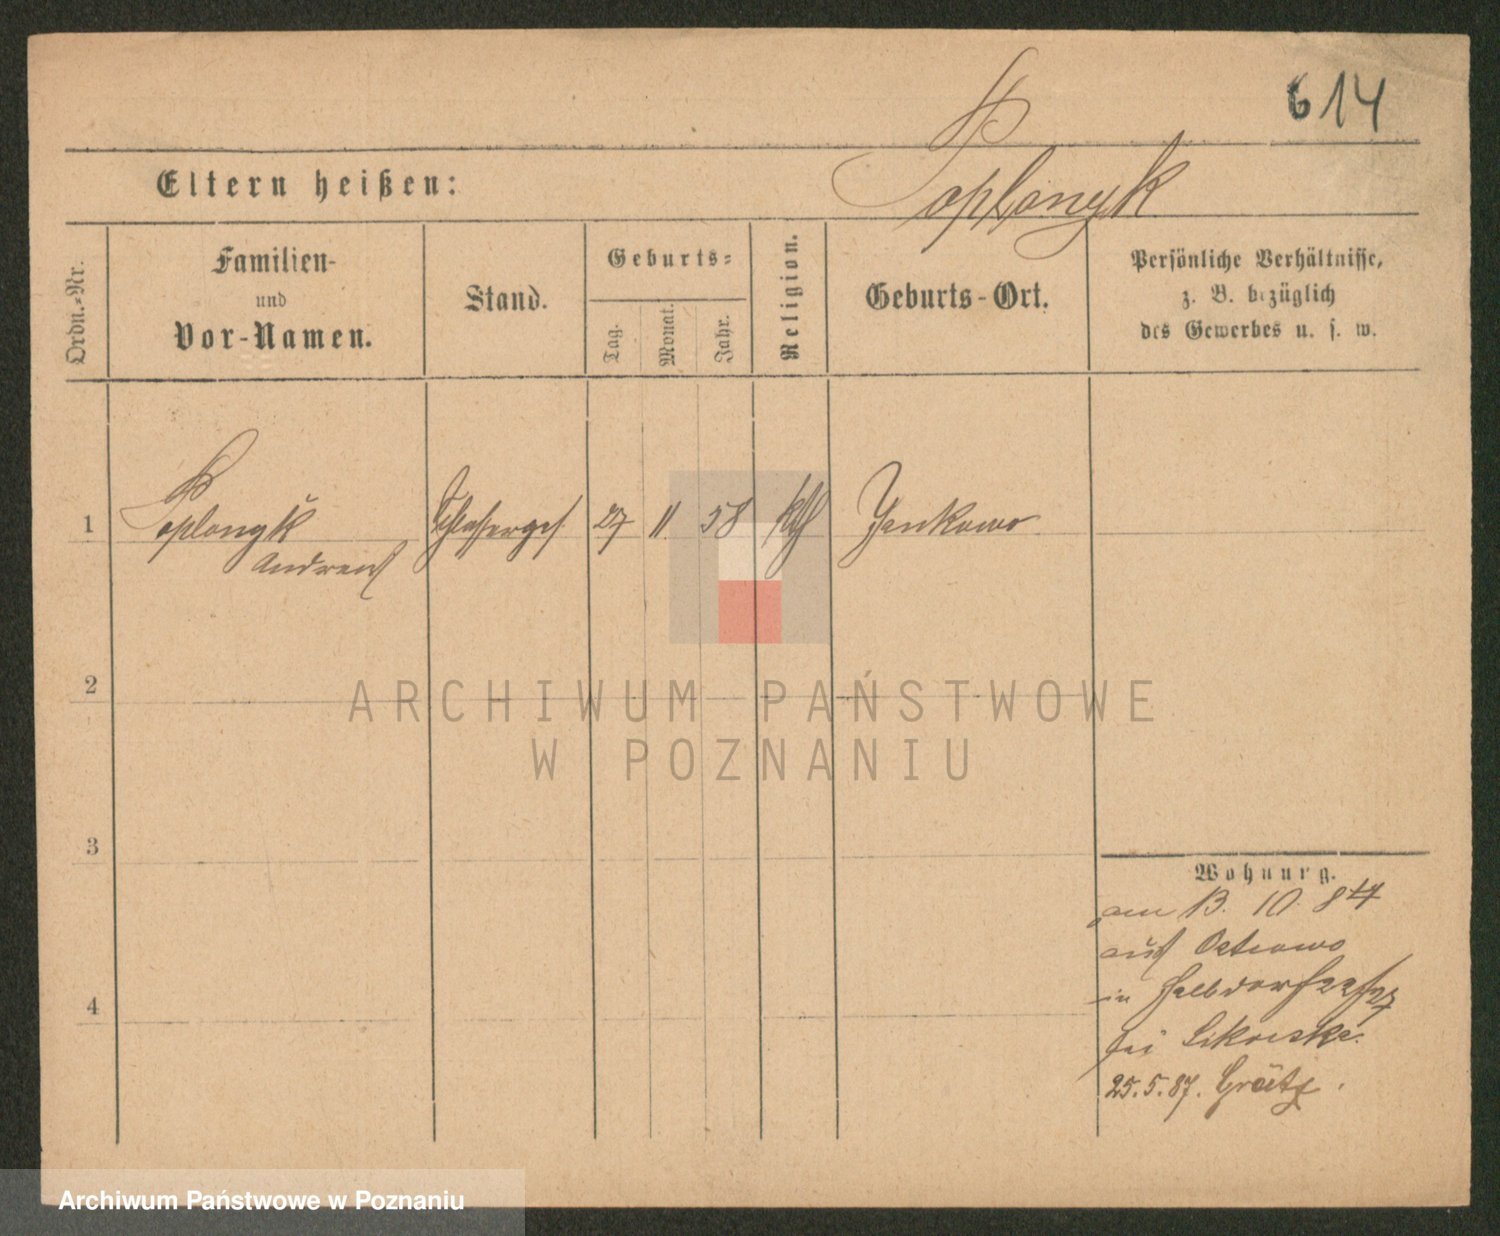 614
Poplonyk
Eltern heißen:
Ordn.-Nr.
Familien-
und
Vor-Namen.
Stand.
Geburts-
Tag.
Monat.
Jahr.
Religion.
Geburts-Ort.
Persönliche Verhältnisse,
z. B. bezüglich
des Gewerbes u. s. w.
1 Poplonyk 27 11 58 kth Jankowo
Andreas
2
ARCHIWUM PAŃSTWOWE
W POZNANIU
3
Wohnung.
am 13. 10. 84
aus Ostrowo
in Halbdorfstr 27
bei
4
25. 5. 87. Grätz.
Archiwum Państwowe w Poznaniu